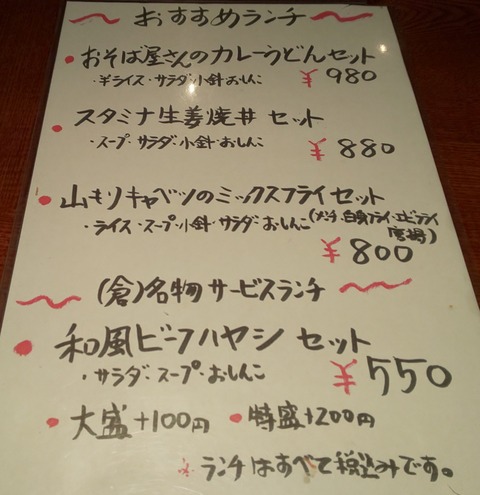 おすすめランチ
・おそば屋さんのカレーうどんセット
・半ライス・サラダ・小針・おしんこ ¥980
・スタミナ生姜焼丼 セット
・スープ・サラダ・小針・おしんこ ¥880
・山もりキャベツのミックスフライセット
・ライス・スープ・小針・サラダ・おしんこ(メンチ・白身フライ・エビフライ
唐揚)
¥800
(倉)名物サービスランチ
・和風ビーフハヤシ セット
・サラダ・スープ・おしんこ ¥550
・大盛+100円 ・特盛+200円
※ランチはすべて税込みです。